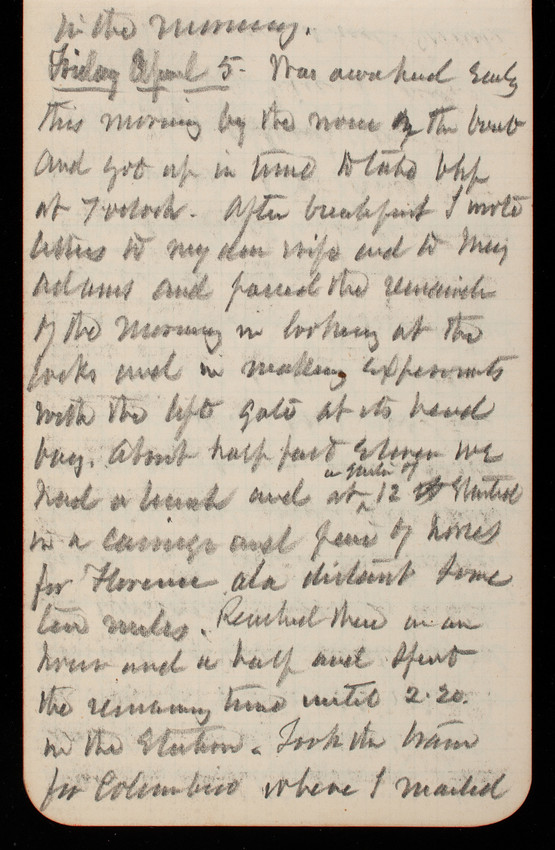 in the morning.
Friday April 5. Was awakened early
this morning by the noise of the boat
and got up in time to take bkf
at 7 o'clock. After breakfast I wrote
letters to my dear wife and to Maj
Adams and passed the remainder
of the morning in looking at the
locks and in making experiments
with the lift gate at its head
bay. About half past eleven we
had a lunch and at a quarter of 12 started
in a carriage and pair of horses
for Florence ala distant some
ten miles. Reached there in an
hour and a half and spent
the remaining time until 2.20.
in the Station. Took the train
for Columbus where I mailed